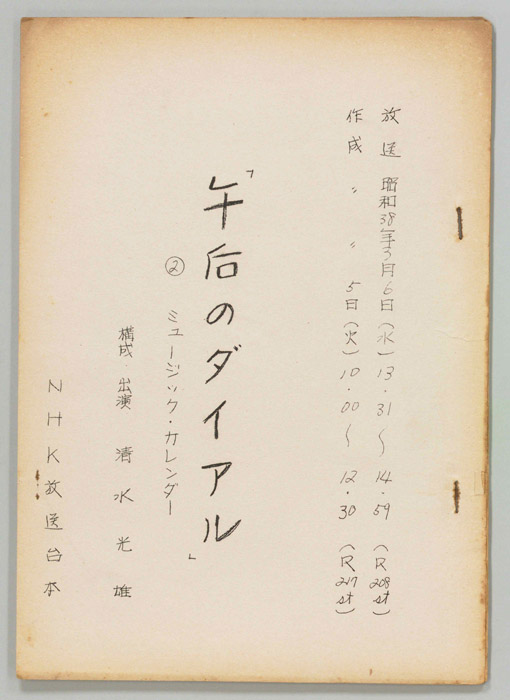 放送 昭和38年3月6日(水)13.31〜14.59(R208st)
作成 〃 〃 5日(火)10.00〜12.30(R217st)
「午后のダイアル」
② ミュージック・カレンダー
構成・出演 清水光雄
NHK放送台本